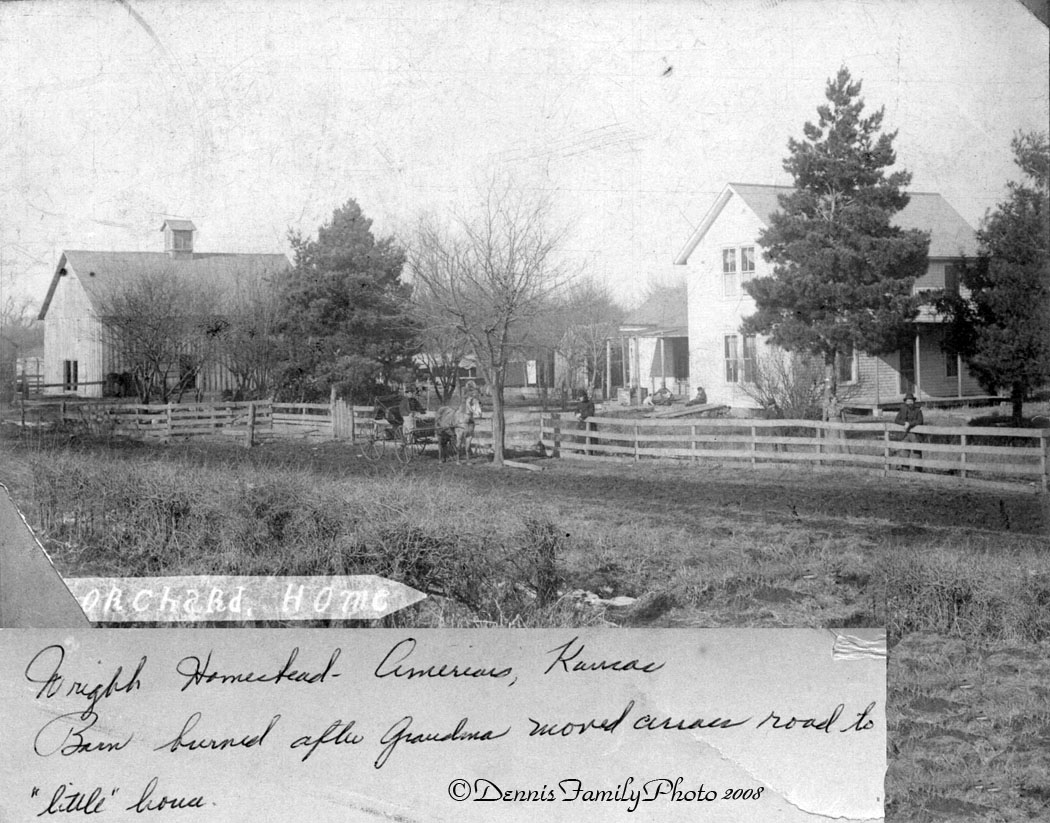 Orchard, Home
Wright Homestead - Americus, Kansas
Barn burned after Grandma moved across road to
"little" house.
©DennisFamilyPhoto 2008